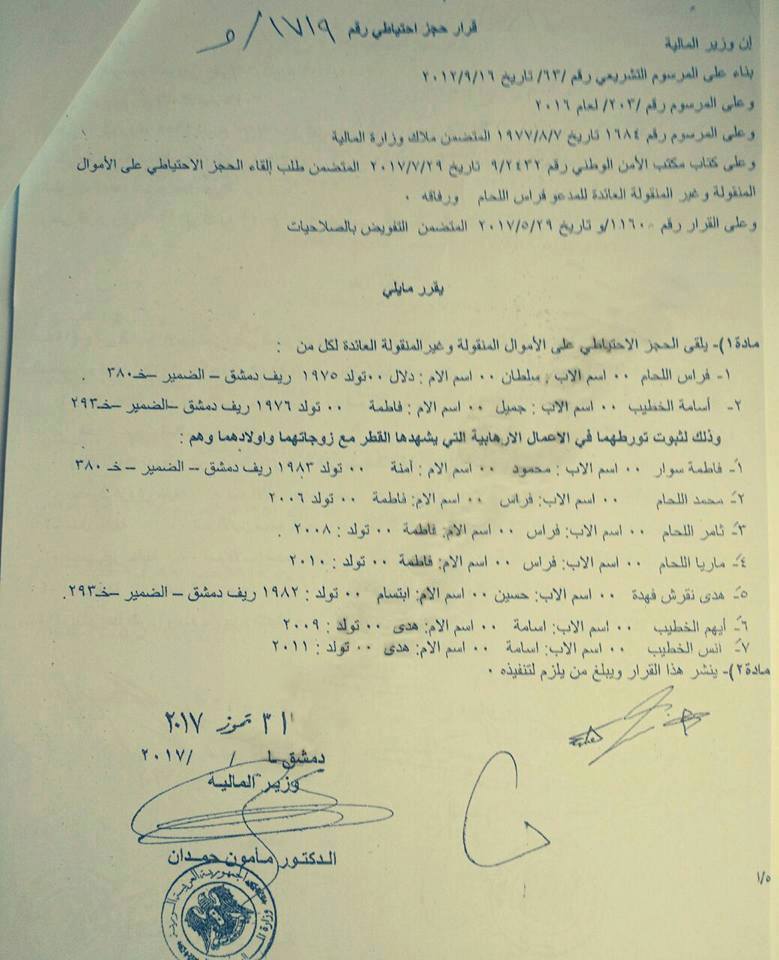 قرار حجز احتياطي رقم ١٧١٩/و
إن وزير المالية
بناء على المرسوم التشريعي رقم /٦٣/ تاريخ ٢٠١٢/٩/١٦
وعلى المرسوم رقم /٢٠٣/ لعام ٢٠١٦
وعلى المرسوم رقم ١٦٨٤ تاريخ ١٩٧٧/٨/٧ المتضمن ملاك وزارة المالية
وعلى كتاب مكتب الأمن الوطني رقم ٩/٢٤٣٢ تاريخ ٢٠١٧/٧/٢٩ المتضمن طلب إلقاء الحجز الاحتياطي على الأموال
المنقولة وغير المنقولة العائدة للمدعو فراس اللحام ورفاقه ٠
وعلى القرار رقم ١١٦٠/و تاريخ ٢٠١٧/٥/٢٩ المتضمن التفويض بالصلاحيات
يقرر مايلي
مادة١)- يلقى الحجز الاحتياطي على الأموال المنقولة وغيرالمنقولة العائدة لكل من :
١- فراس اللحام ٠٠ اسم الاب : سلطان ٠٠ اسم الام : دلال ٠٠تولد ١٩٧٥ ريف دمشق – الضمير –خـ٣٨٠ .
٢- أسامة الخطيب ٠٠ اسم الاب : جميل ٠٠ اسم الام : فاطمة ٠٠ تولد ١٩٧٦ ريف دمشق –الضمير –خـ٢٩٣
وذلك لثبوت تورطهما في الاعمال الارهابية التي يشهدها القطر مع زوجاتهما واولادهما وهم :
١- فاطمة سوار ٠٠ اسم الاب : محمود ٠٠ اسم الام : آمنة ٠٠ تولد ١٩٨٣ ريف دمشق – الضمير – خـ ٣٨٠
٢- محمد اللحام ٠٠ اسم الاب: فراس ٠٠ اسم الام: فاطمة ٠٠ تولد ٢٠٠٦
٣- ثامر اللحام ٠٠ اسم الاب: فراس ٠٠ اسم الام: فاطمة ٠٠ تولد : ٢٠٠٨ .
٤- ماريا اللحام ٠٠ اسم الاب: فراس ٠٠ اسم الام: فاطمة ٠٠ تولد : ٢٠١٠
٥- هدى نقرش فهدة ٠٠ اسم الاب: حسين ٠٠ اسم الام: ابتسام ٠٠ تولد : ١٩٨٢ ريف دمشق – الضمير –خـ٢٩٣.
٦- أيهم الخطيب ٠٠ اسم الاب: اسامة ٠٠ اسم الام: هدى ٠٠ تولد : ٢٠٠٩
٧- انس الخطيب ٠٠ اسم الاب: اسامة ٠٠ اسم الام: هدى ٠٠ تولد : ٢٠١١
مادة٢)- ينشر هذا القرار ويبلغ من يلزم لتنفيذه ٠
٣١ تموز ٢٠١٧
دمشق / / ٢٠١٧
وزير المالية
الدكتور مأمون حمدان
الجمهورية العربية السورية
١/٥